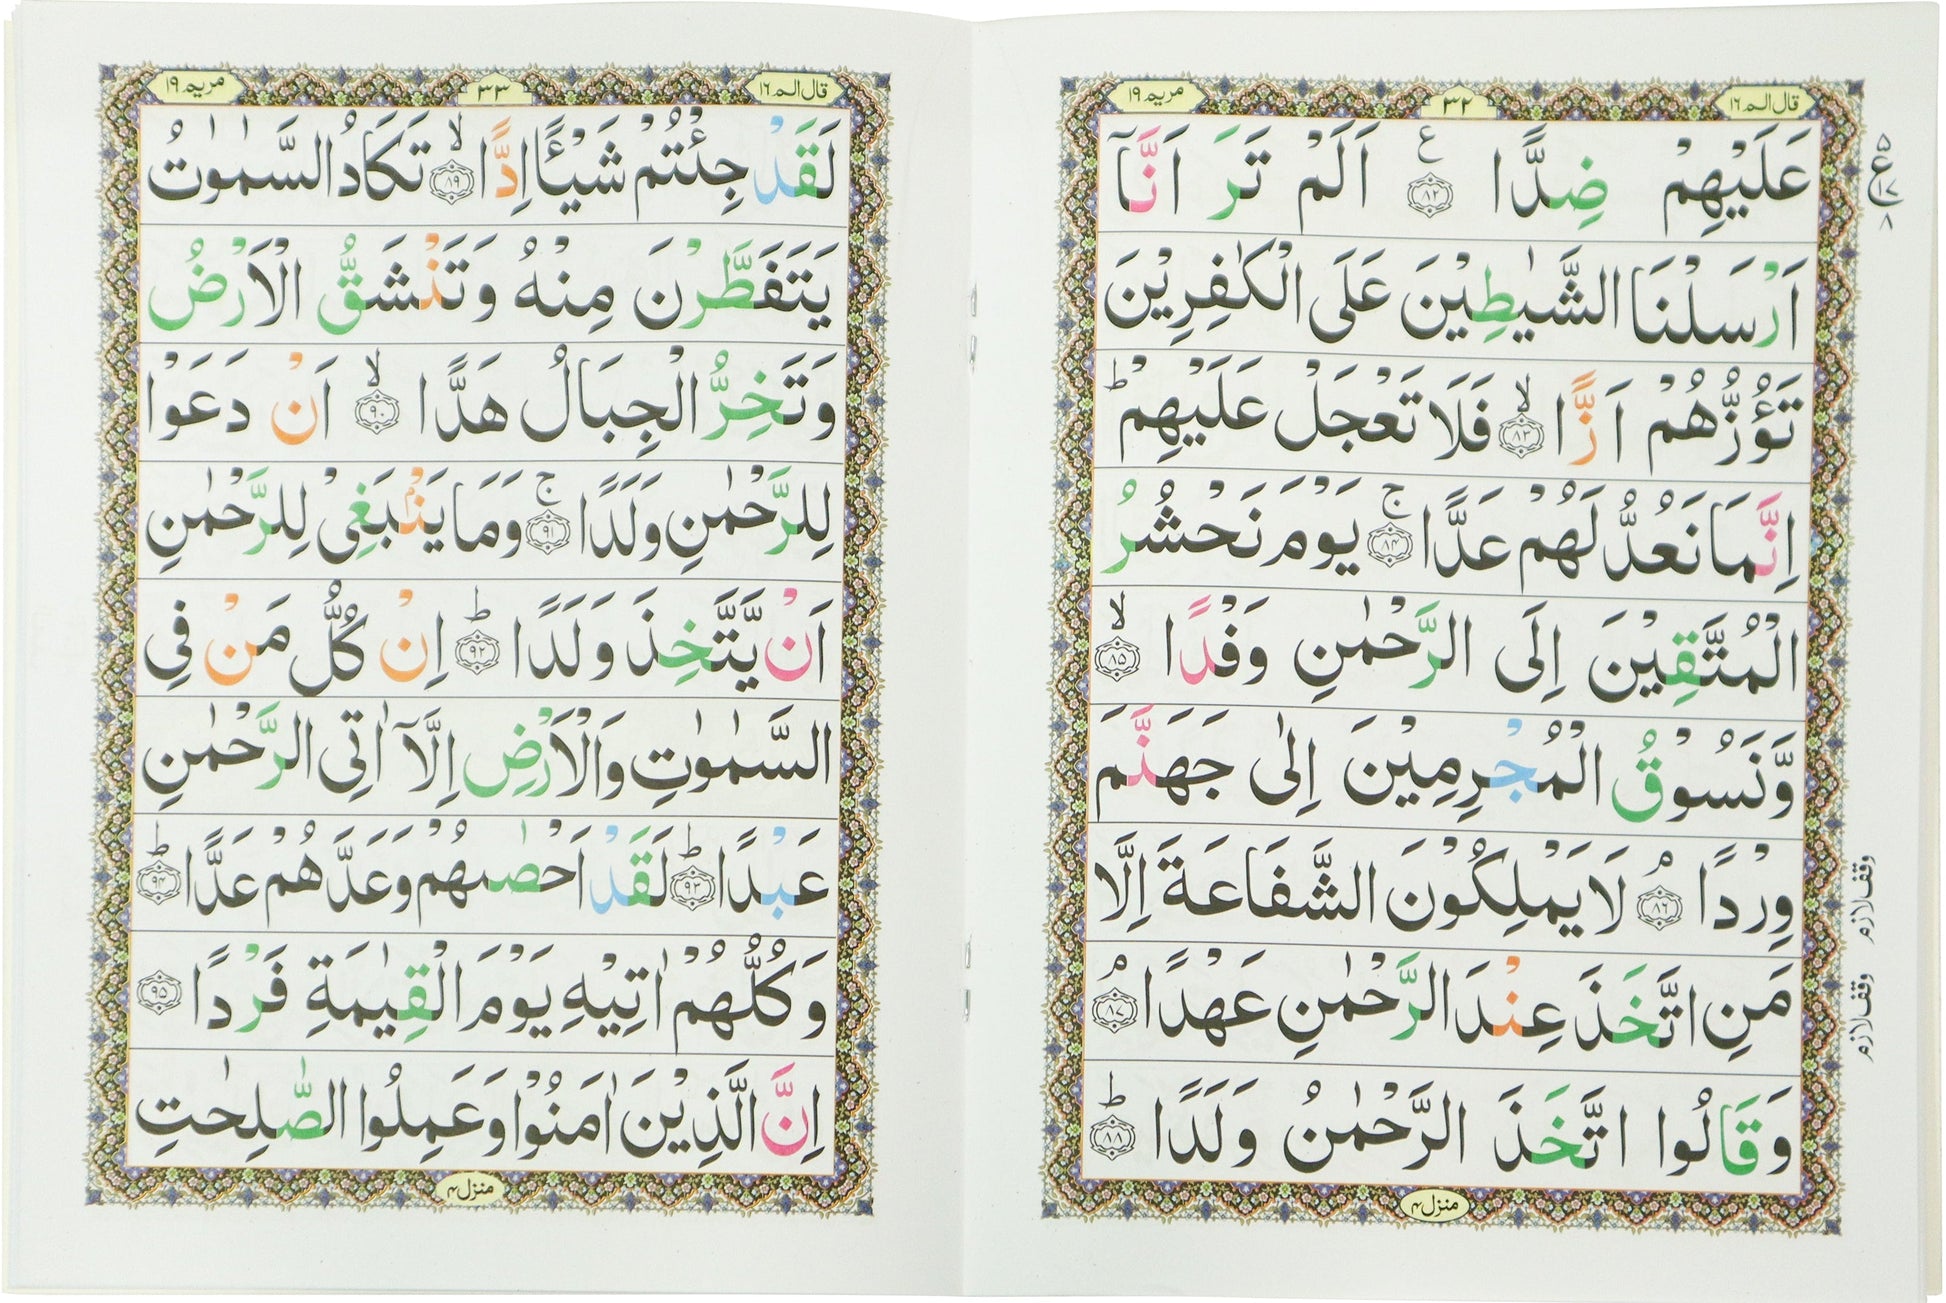 قال الم ١٦
٣٢
مريم ١٩
عَلَيْهِمْ ضِدًّا ۧ ﴿٨٢﴾ اَلَمْ تَرَ اَنَّآ
اَرْسَلْنَا الشَّيٰطِيْنَ عَلَى الْكٰفِرِيْنَ
تَؤُزُّهُمْ اَزًّا ۙ ﴿٨٣﴾ فَلَا تَعْجَلْ عَلَيْهِمْ ؕ
اِنَّمَا نَعُدُّ لَهُمْ عَدًّا ۚ ﴿٨٤﴾ يَوْمَ نَحْشُرُ
الْمُتَّقِيْنَ اِلَى الرَّحْمٰنِ وَفْدًا ۙ ﴿٨٥﴾
وَّنَسُوْقُ الْمُجْرِمِيْنَ اِلٰى جَهَنَّمَ
وِرْدًا ۘ ﴿٨٦﴾ لَا يَمْلِكُوْنَ الشَّفَاعَةَ اِلَّا
مَنِ اتَّخَذَ عِنْدَ الرَّحْمٰنِ عَهْدًا ۘ ﴿٨٧﴾
وَقَالُوا اتَّخَذَ الرَّحْمٰنُ وَلَدًا ؕ ﴿٨٨﴾
منزل ٤
٥
ع ١٧
٨
وقف لازم
وقف لازم
قال الم ١٦
٣٣
مريم ١٩
لَقَدْ جِئْتُمْ شَيْـًٔا اِدًّا ۙ ﴿٨٩﴾ تَكَادُ السَّمٰوٰتُ
يَتَفَطَّرْنَ مِنْهُ وَتَنْشَقُّ الْاَرْضُ
وَتَخِرُّ الْجِبَالُ هَدًّا ۙ ﴿٩٠﴾ اَنْ دَعَوْا
لِلرَّحْمٰنِ وَلَدًا ۚ ﴿٩١﴾ وَمَا يَنْۢبَغِيْ لِلرَّحْمٰنِ
اَنْ يَّتَّخِذَ وَلَدًا ؕ ﴿٩٢﴾ اِنْ كُلُّ مَنْ فِي
السَّمٰوٰتِ وَالْاَرْضِ اِلَّآ اٰتِي الرَّحْمٰنِ
عَبْدًا ؕ ﴿٩٣﴾ لَقَدْ اَحْصٰىهُمْ وَعَدَّهُمْ عَدًّا ؕ ﴿٩٤﴾
وَكُلُّهُمْ اٰتِيْهِ يَوْمَ الْقِيٰمَةِ فَرْدًا ﴿٩٥﴾
اِنَّ الَّذِيْنَ اٰمَنُوْا وَعَمِلُوا الصّٰلِحٰتِ
منزل ٤